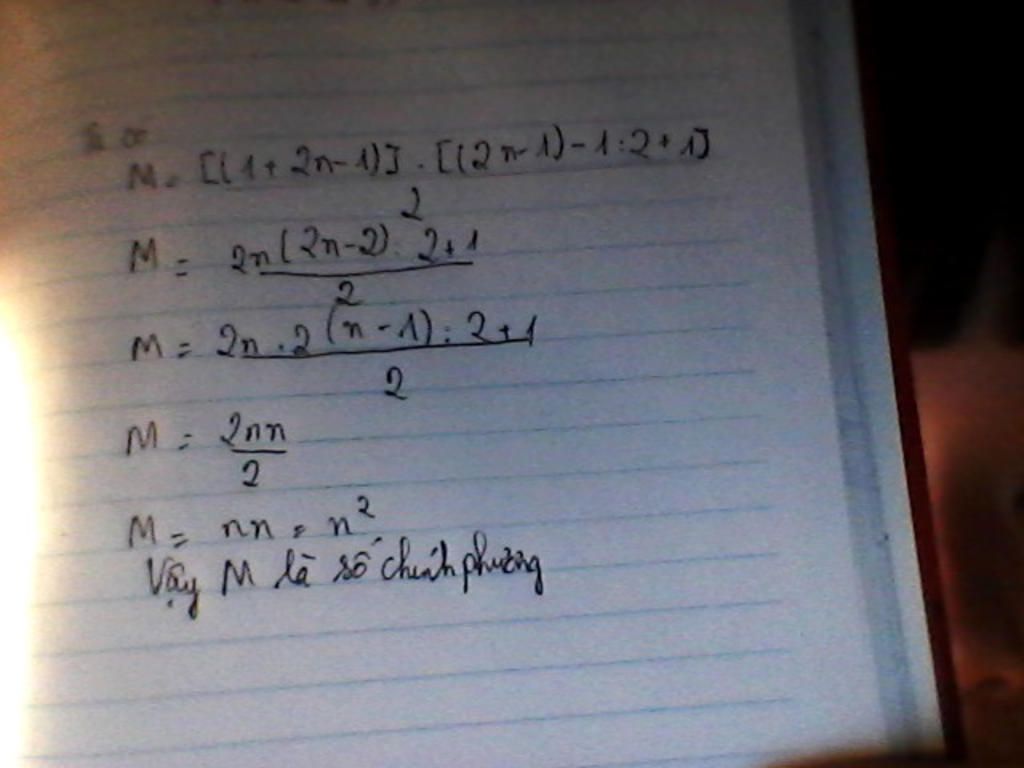 M = [(1 + 2n - 1)] . [(2n - 1) - 1 : 2 + 1]
2
M = 2n(2n - 2) : 2 + 1
2
M = 2n . 2 (n - 1) : 2 + 1
2
M = 2nn
2
M = nn = n²
Vậy M là số chính phương